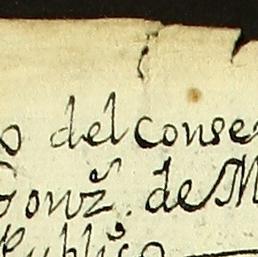 o del conse
Gonz. de M
Publico